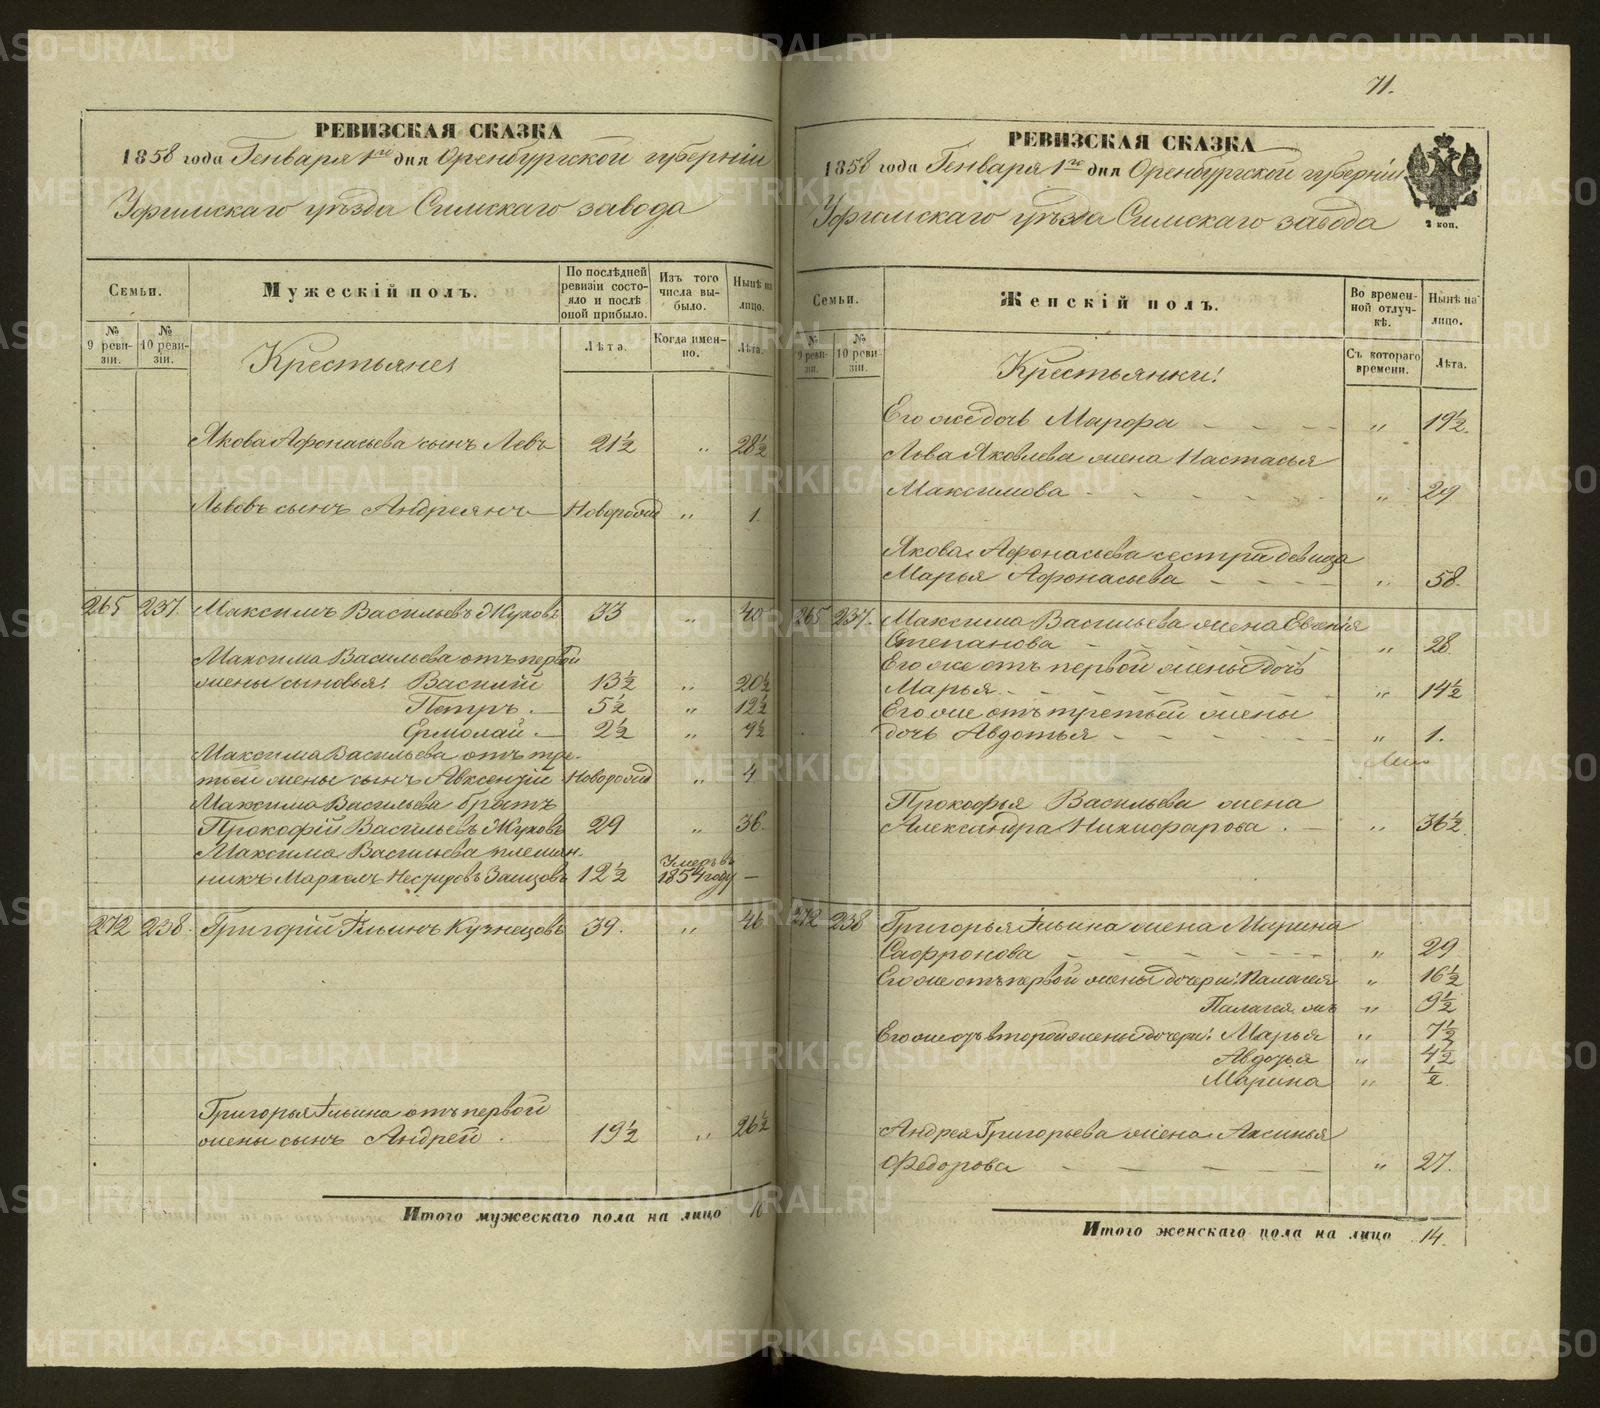 РЕВИЗСКАЯ СКАЗКА
1858 года Генваря 1го дня Оренбургской губерніи
Уфимскаго уѣзда Симскаго завода
Семьи.
Мужескій полъ.
По послѣдней ревизіи состояло и послѣ оной прибыло.
Изъ того числа выбыло.
Нынѣ на лицо.
№ 9 ревизіи.
№ 10 ревизіи.
Крестьяне
Лѣта.
Когда именно.
Лѣта.
Якова Афонасьева сынъ Левъ 21½ „ 28½
Львовъ сынъ Андреянъ Новорожд „ 1.
265 237. Максимъ Васильевъ Жуковъ 33 „ 40
Максима Васильева отъ первой
жены сыновья: Василій 13½ „ 20½
Петръ. 5½ „ 12½
Ермолай. 2½ „ 9½
Максима Васильева отъ тре-
тьей жены сынъ Авксентій Новорожд „ 4
Максима Васильева братъ
Прокофій Васильевъ Жуковъ 29 „ 36.
Максима Васильева племян-
никъ Маркелъ Несторовъ 12½ Умеръ въ 1854 году —
272 238. Григорій Ильинъ Кузнецовъ 39. „ 46
Григорья Ильина отъ первой
жены сынъ Андрей. 19½ „ 26½
Итого мужескаго пола на лицо 10
71.
РЕВИЗСКАЯ СКАЗКА
1858 года Генваря 1го дня Оренбургской губерніи
Уфимскаго уѣзда Симскаго завода
2 коп.
Семьи.
Женскій полъ.
Во временной отлучкѣ.
Нынѣ на лицо.
№ 9 ревизіи.
№ 10 ревизіи.
Крестьянки:
Съ котораго времени.
Лѣта.
Его же дочь Марфа „ 19½.
Льва Яковлева жена Настасья
Максимова „ 29
Якова Афонасьева сестра девица
Марья Афонасьева „ 58.
265 237. Максима Васильева жена Евгенія
Степанова „ 28
Его же отъ первой жены дочь
Марья. „ 14½
Его же отъ третьей жены
дочь Авдотья „ 1.
Прокофья Васильева жена
Александра Никифарова. „ 36½
272 238 Григорья Ильина жена Марина
Сафронова „ 29
Его же отъ первой жены дочери: Палагея „ 16½
Палагея жъ „ 9½
Его же отъ второй жены дочери: Марья „ 7½
Авдотья „ 4½
Марина „ ½
Андрея Григорьева жена Аксинья
Федорова „ 27.
Итого женскаго пола на лицо 14.
METRIKI.GASO-URAL.RU